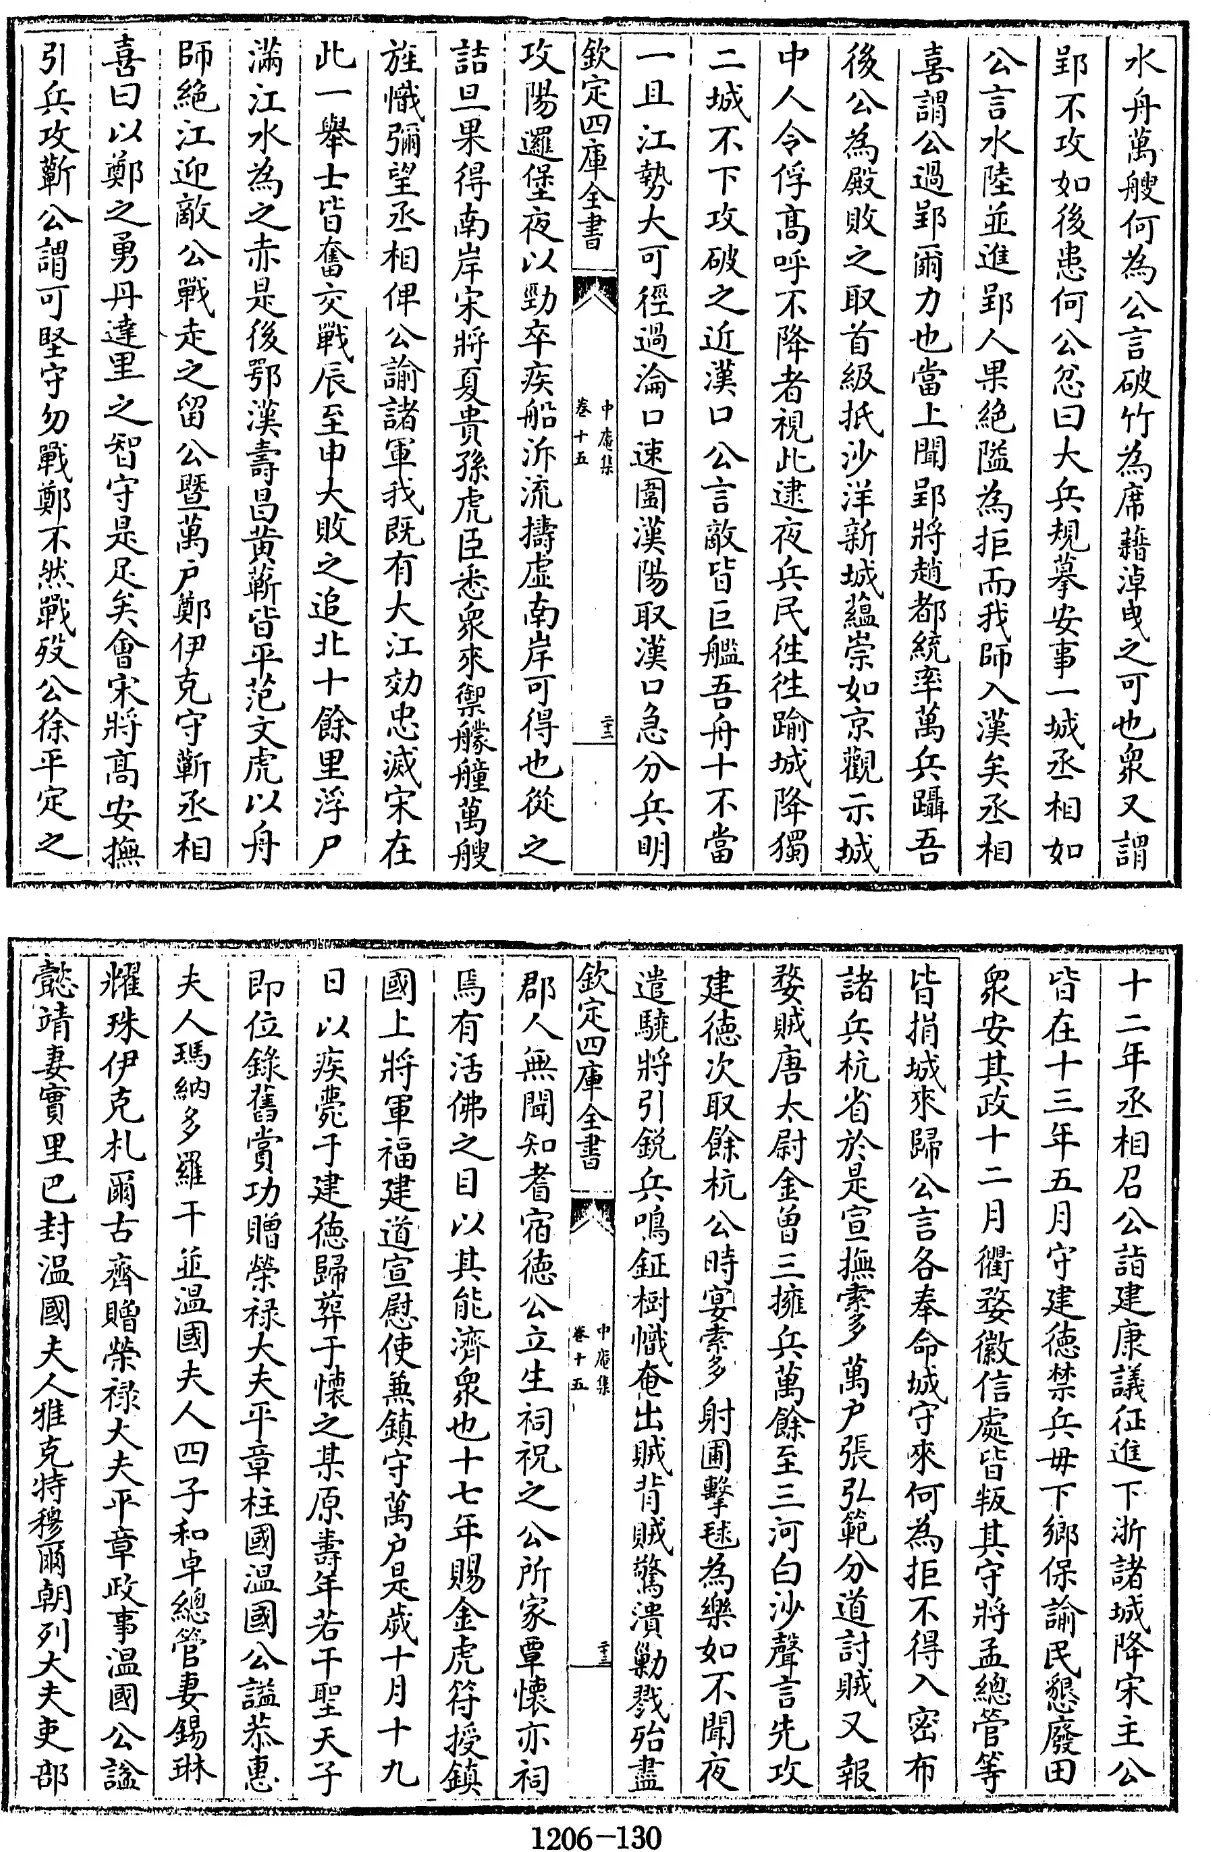 水舟萬艘何為公言破竹為席藉淖曳之可也衆又謂
郢不攻如後患何公忿曰大兵規摹安事一城丞相如
公言水陸並進郢人果絶隘為拒而我師入漢矣丞相
喜謂公過郢爾力也當上聞郢將趙都統率萬兵躡吾
後公為殿敗之取首級抵沙洋新城蘊崇如京觀示城
中人令俘髙呼不降者視此逮夜兵民徃徃踰城降獨
二城不下攻破之近漢口公言敵皆巨艦吾舟十不當
一且江勢大可徑過淪口速圍漢陽取漢口急分兵明
欽定四庫全書
中庵集
卷十五
二十二
攻陽邏堡夜以勁卒疾船泝流擣虚南岸可得也從之
詰旦果得南岸宋將夏貴孫虎臣悉衆來禦艨艟萬艘
旌幟彌望丞相俾公諭諸軍我既有大江効忠滅宋在
此一舉士皆奮交戰辰至申大敗之追北十餘里浮尸
滿江水為之赤是後鄂漢壽昌黄蘄皆平范文虎以舟
師絶江迎敵公戰走之留公暨萬户鄭伊克守蘄丞相
喜曰以鄭之勇丹達里之智守是足矣會宋將髙安撫
引兵攻蘄公謂可堅守勿戰鄭不然戰殁公徐平定之
十二年丞相召公詣建康議征進下浙諸城降宋主公
皆在十三年五月守建徳禁兵毋下鄉保諭民懇廢田
衆安其政十二月衢婺徽信處皆叛其守將孟總管等
皆捐城來歸公言各奉命城守來何為拒不得入密布
諸兵杭省於是宣撫索多萬户張弘範分道討賊又報
婺賊唐太尉金曾三擁兵萬餘至三河白沙聲言先攻
建徳次取餘杭公時宴索多射圃擊毬為樂如不聞夜
遣驍將引鋭兵鳴鉦樹幟奄出賊背賊驚潰勦戮殆盡
欽定四庫全書
中庵集
卷十五
二十三
郡人無聞知者宿徳公立生祠祝之公所家覃懷亦祠
焉有活佛之目以其能濟衆也十七年賜金虎符授鎮
國上將軍福建道宣慰使兼鎮守萬户是嵗十月十九
日以疾薨于建徳歸葬于懷之某原壽年若干聖天子
即位錄舊賞功贈榮禄大夫平章柱國温國公諡恭惠
夫人瑪納多羅干並温國夫人四子和卓總管妻錫琳
耀珠伊克札爾古齊贈榮禄大夫平章政事温國公諡
懿靖妻實里巴封温國夫人雅克特穆爾朝列大夫吏部
1206-130